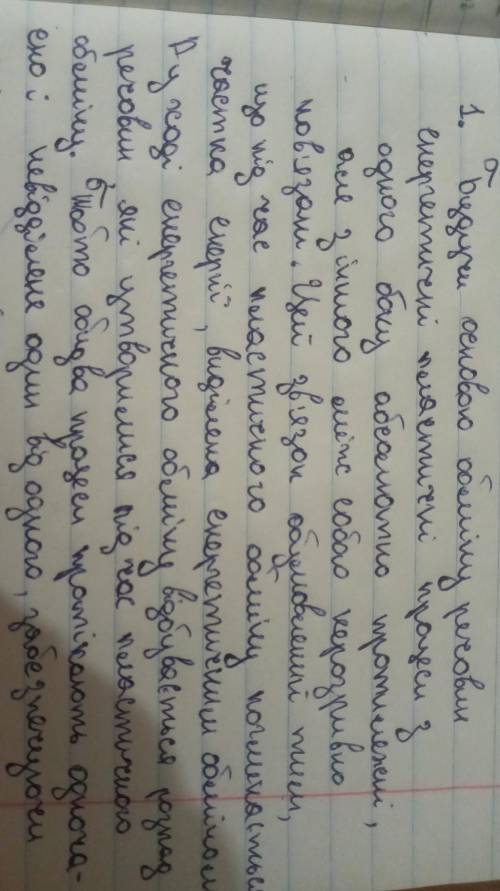 1. Будучи основою обміну речовин
енергетичні пластичні процеси з
одного боку абсолютно протилежні,
але з іншого між собою нерозривно
пов'язані. Цей зв'язок обумовлений тим,
що під час пластичного обміну поглинається
частка енергії, виділена енергетичним обміном
А у ході енергетичного обміну відбувається розпад
речовин які утворилися під час пластичного
обміну. Тобто обидва процеси протікають одноча-
сно і невідділене один від одного, забезпечуючи